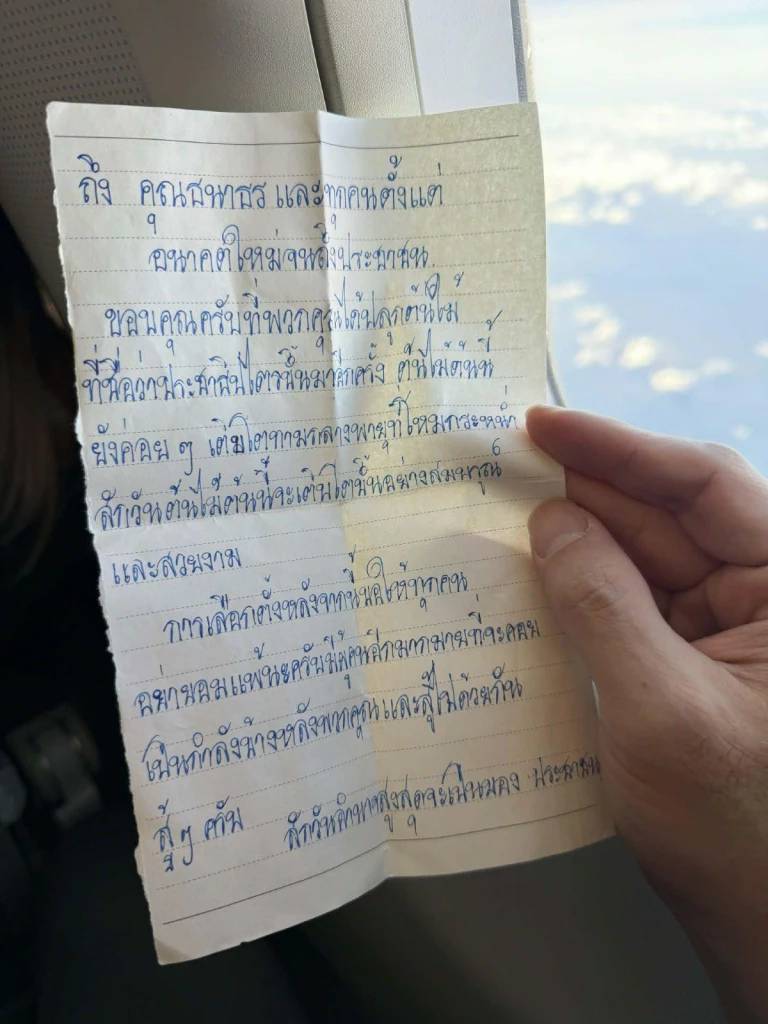 ถึง คุณธนาธร และทุกคนตั้งแต่
อนาคตใหม่จนถึงประชาชน.
ขอบคุณครับที่พวกคุณได้ปลูกต้นไม้
ที่ชื่อว่าประชาธิปไตยขึ้นมาอีกครั้ง ต้นไม้ต้นนี้
ยังค่อย ๆ เติบโตท่ามกลางพายุที่โหมกระหน่ำ
สักวันต้นไม้ต้นนี้จะเติบโตขึ้นอย่างสมบูรณ์
และสวยงาม
การเลือกตั้งหลังจากนี้ขอให้ทุกคน
อย่ายอมแพ้นะครับมีผู้คนอีกมากมายที่จะคอย
เป็นกำลังข้างหลังพวกคุณและสู้ไปด้วยกัน
สู้ๆ ครับ สักวันอำนาจสูงสุดจะเป็นของ ประชาชน